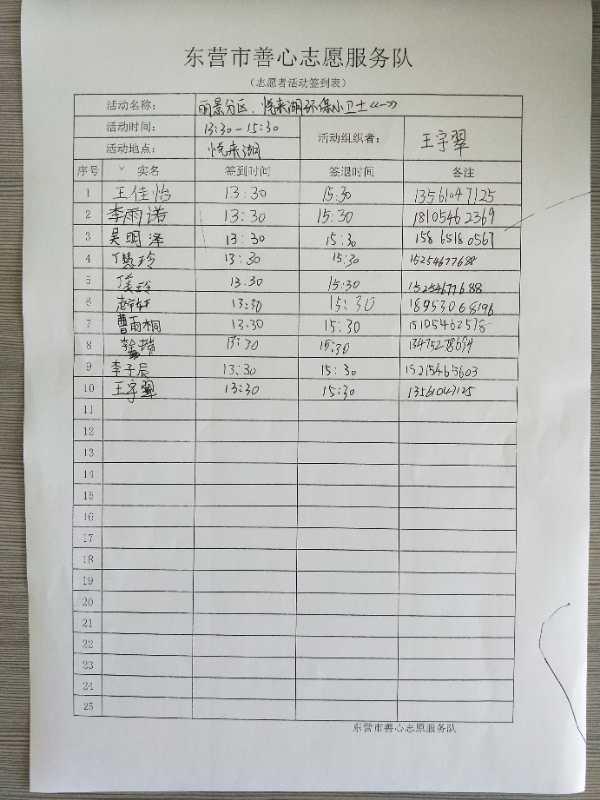 东营市善心志愿服务队
（志愿者活动签到表）
活动名称： 丽景分区、悦来湖环保小卫士<一>
活动时间： 13:30-15:30 活动组织者： 王宇翠
活动地点： 悦来湖
序号 实名 签到时间 签退时间 备注
1 王佳怡 13:30 15:30 13561047125
2 李雨诺 13:30 15:30 18105462369
3 吴明泽 13:30 15:30 15865180567
4 玲 13:30 15:30 15254677688
5 玲 13.30 15:30 15254677688
6 13:30 15:30 18953068196
7 曹雨桐 13.30 15:30 15105462578
8 13:30 15:30
9 李子辰 13:30 15:30 15215465603
10 王宇翠 13:30 15:30 13561047125
11
12
13
14
15
16
17
18
19
20
21
22
23
24
25
东营市善心志愿服务队